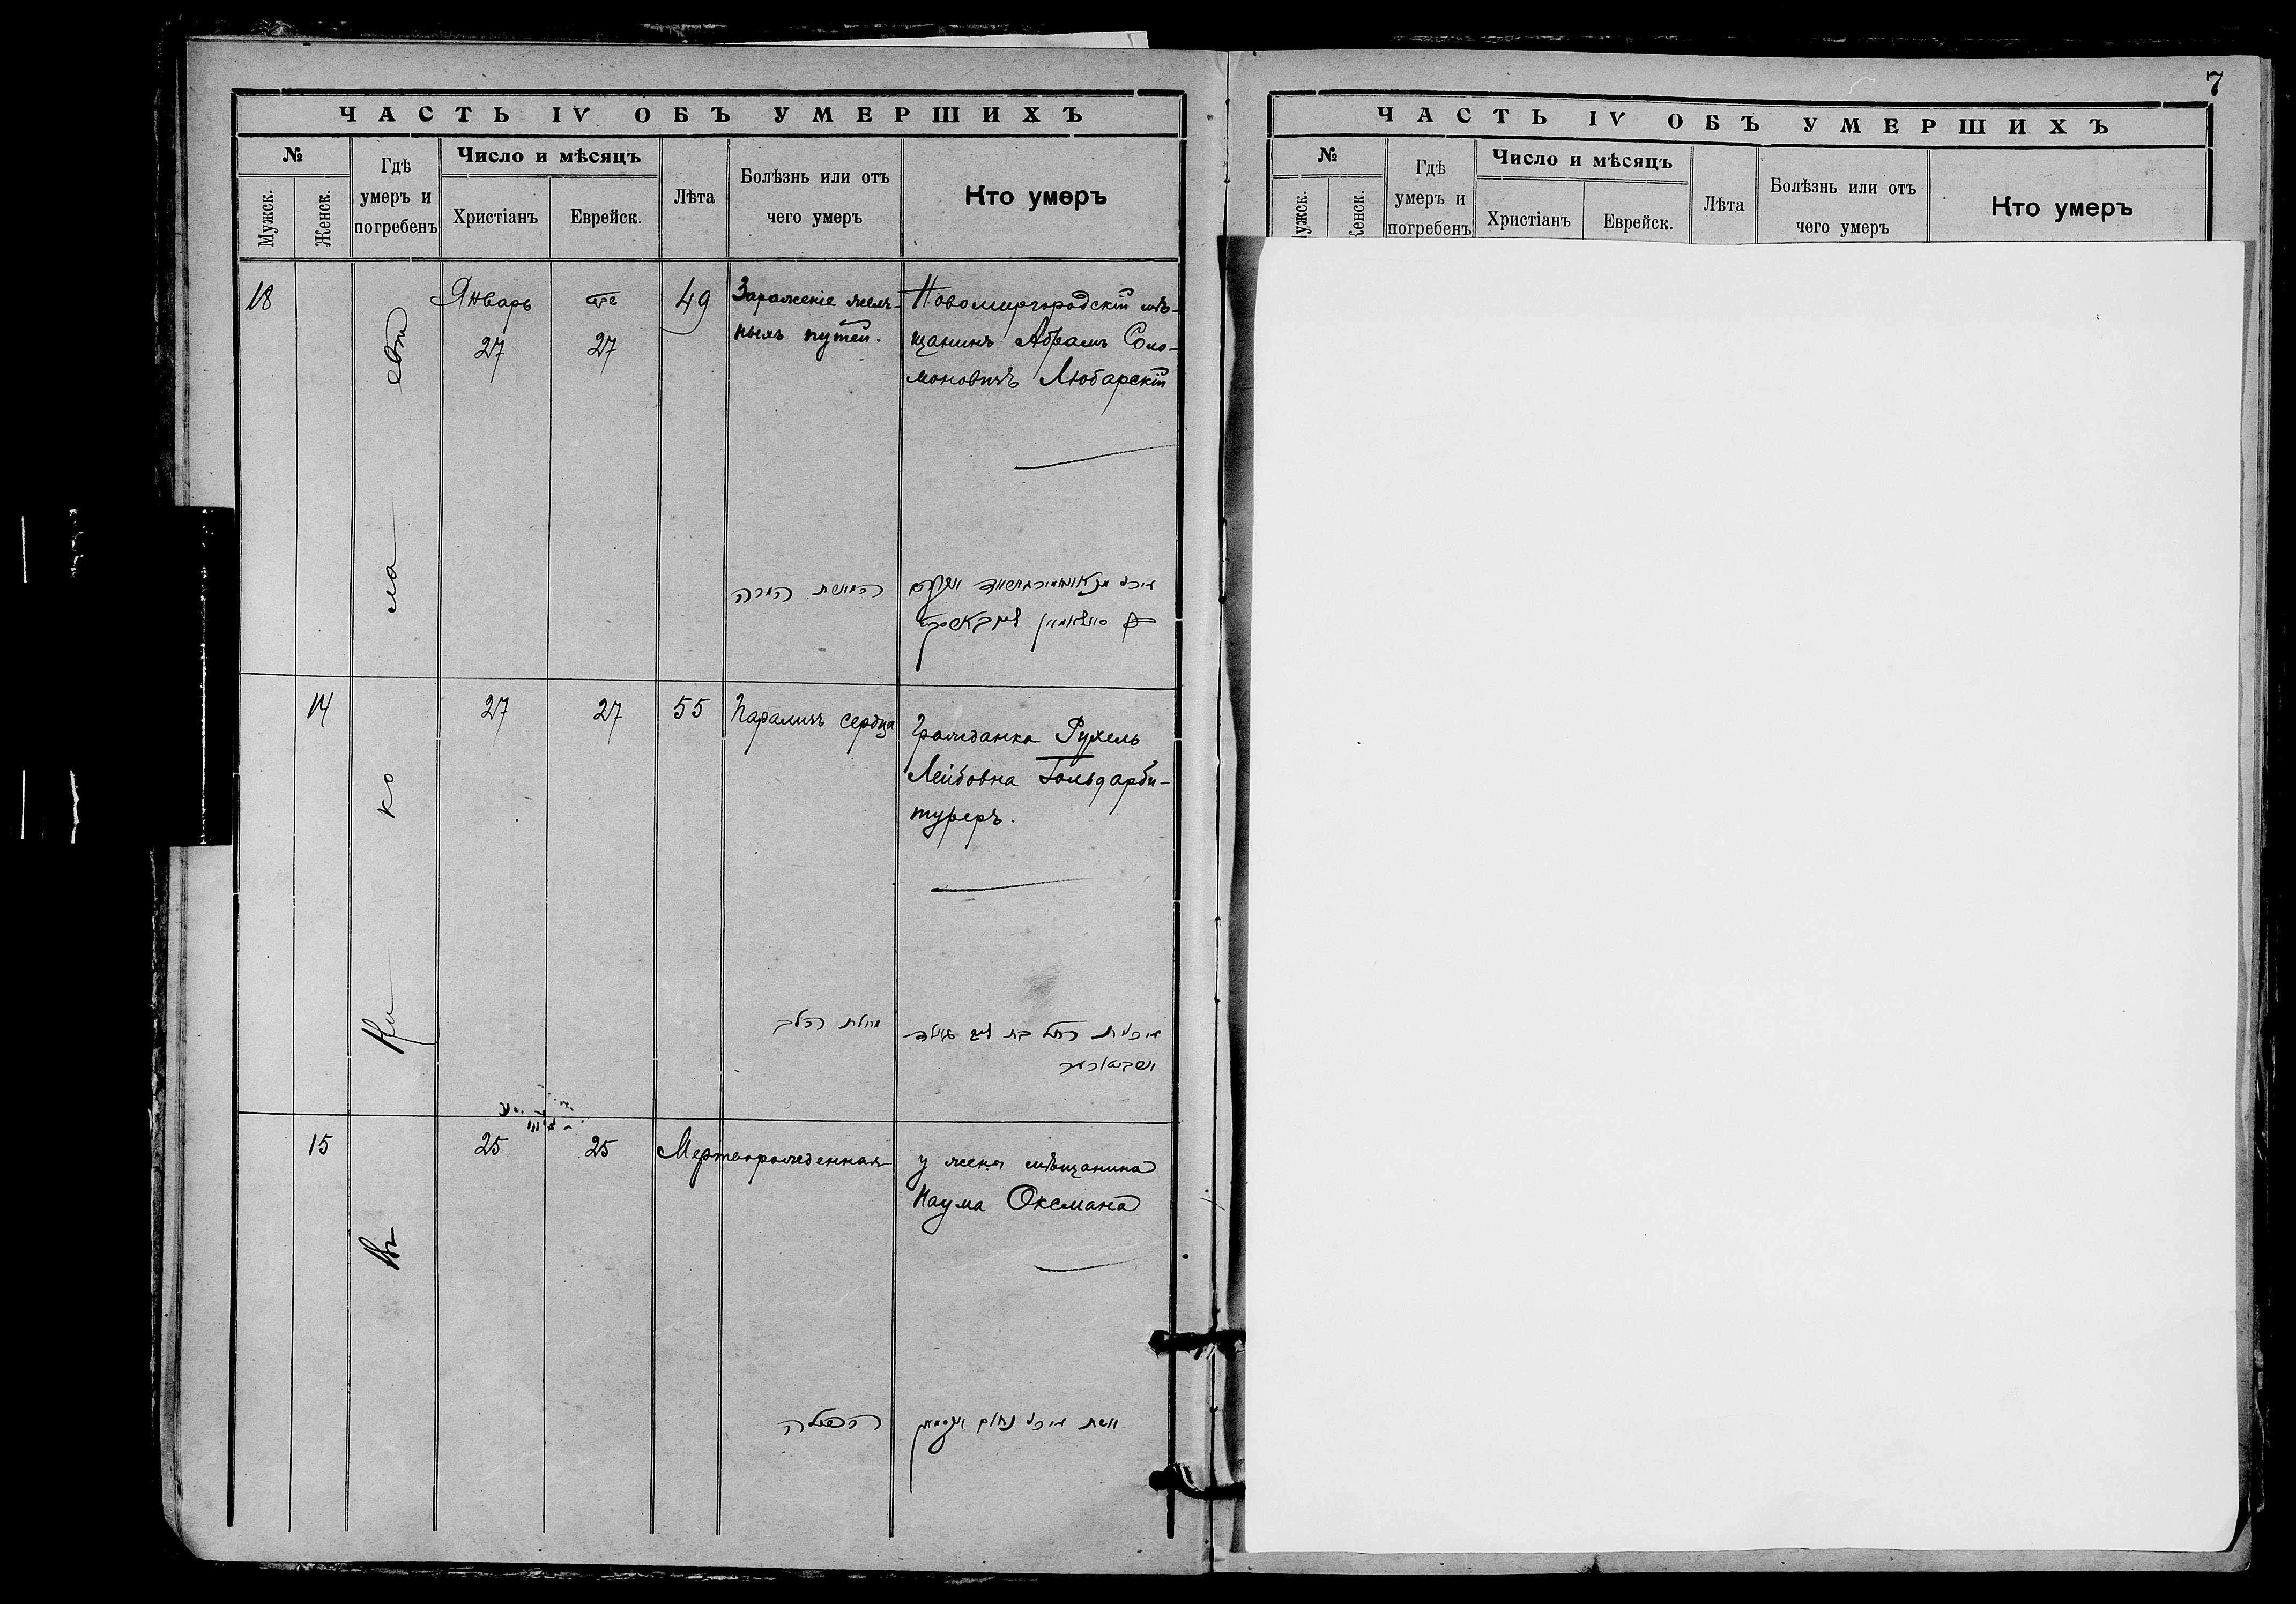 7
ЧАСТЬ IV ОБЪ УМЕРШИХЪ
№
Мужск.
Женск.
Гдѣ
умеръ и
погребенъ
Число и мѣсяцъ
Христіанъ
Еврейск.
Лѣта
Болѣзнь или отъ
чего умеръ
Кто умеръ
18
Январь
27
27
49
Зараженіе желч-
ныхъ путей.
Новомиргородскій мѣ-
щанинъ Абрамъ Соло-
моновичъ Любарскій
המרה
14
27
27
55
Параличъ сердца
Гражданка Рухель
Лейбовна Гольдарби-
туреръ.
מחלת הלב
רחל בת
15
25
25
Мертворожденная
у жены мѣщанина
Наума Оксмана
הפילה
אשת נחום
Въ Ни ко ла евѣ
ЧАСТЬ IV ОБЪ УМЕРШИХЪ
№
ужск.
Женск.
Гдѣ
умеръ и
погребенъ
Число и мѣсяцъ
Христіанъ
Еврейск.
Лѣта
Болѣзнь или отъ
чего умеръ
Кто умеръ